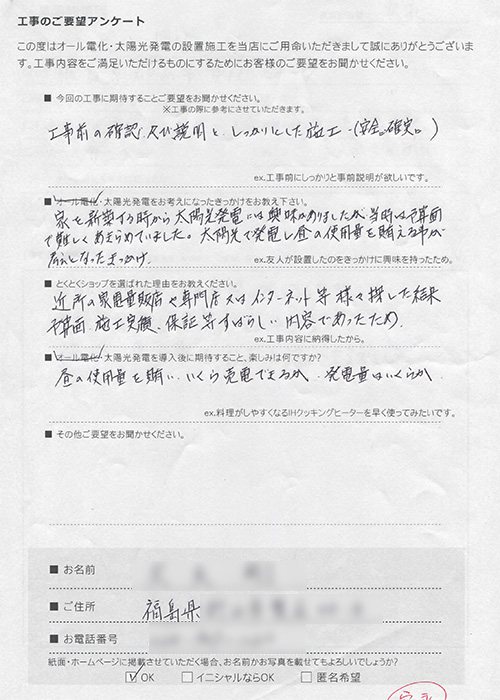 工事のご要望アンケート
この度はオール電化・太陽光発電の設置施工を当店にご用命いただきまして誠にありがとうございま
す。工事内容をご満足いただけるものにするためにお客様のご要望をお聞かせください。
■ 今回の工事に期待することご要望をお聞かせください。
※工事の際に参考にさせていただきます。
工事前の確認及び説明と、しっかりとした施工・(安全。確実。)
ex.工事前にしっかりと事前説明が欲しいです。
■ オール電化・太陽光発電をお考えになったきっかけをお教え下さい。
家を新築する時から太陽光発電には興味がありましたが、当時は予算面
で難しくあきらめていました。太陽光で発電し昼の使用量を賄える事が
となったきっかけ
ex.友人が設置したのをきっかけに興味を持ったため。
■ とくとくショップを選ばれた理由をお教えください。
近所の家電量販店や専門店又はインターネット等様々探した結果
予算面 施工実績、保証等すばらしい内容であったため.
ex.工事内容に納得したから。
■ オール電化・太陽光発電を導入後に期待すること、楽しみは何ですか?
昼の使用量を賄い、いくら売電できるか、発電量はいくらか
ex.料理がしやすくなるIHクッキングヒーターを早く使ってみたいです。
■ その他ご要望をお聞かせください。
■ お名前
■ ご住所 福島県
■ お電話番号
紙面・ホームページに掲載させていただく場合、お名前かお写真を載せてもよろしいでしょうか?
☑ OK □ イニシャルならOK □ 匿名希望